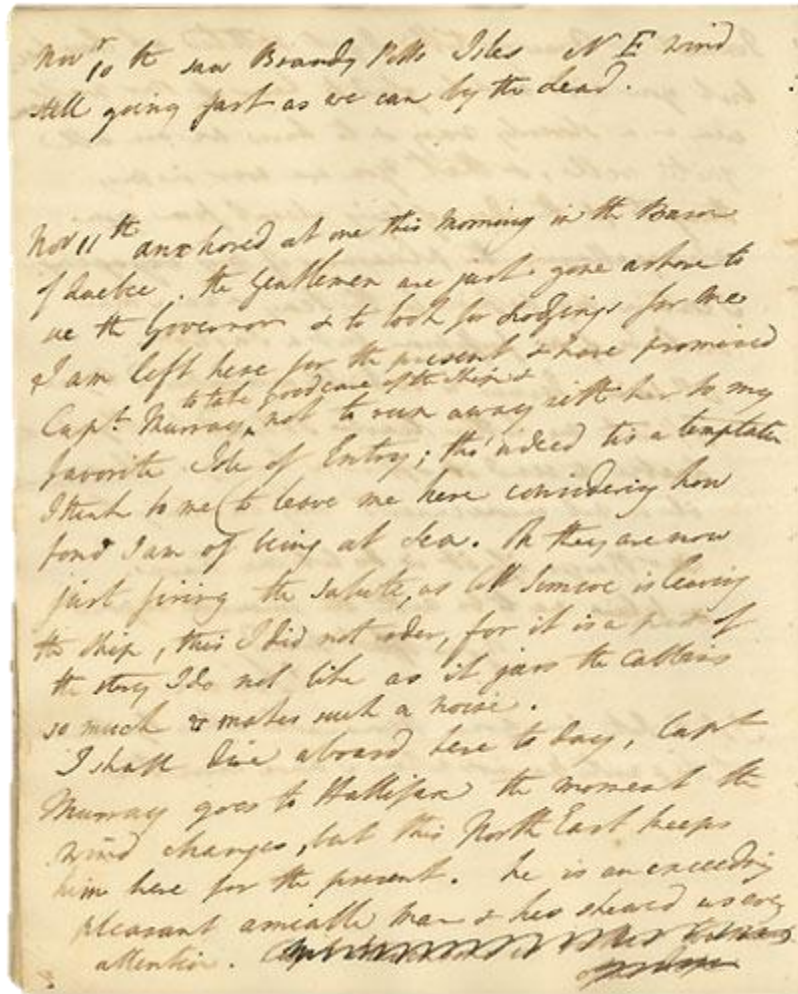 Nov.r 10th saw Brandy Potts Isles N E wind
still going just as we can by the dead.
Nov 11th anchored at one this Morning in the Bason
of Quebec. the Gentlemen are just gone ashore to
see the Governor & to look for Lodgings for me
& I am left here for the present & have promised
to take good care of the Ship &
Capt. Murray not to run away with her to my
favorite Isle of Entry; tho' indeed tis a temptation
I think to me (to leave me here considering how
fond I am of being at Sea. Oh they are now
just firing the Salute, as Coll Simcoe is leaving
the Ship, this I did not order, for it is a part of
the story I do not like as it jars the Cabbins
so much & makes such a noise.
I shall dine aboard here to day, Capt
Murray goes to Hallifax the moment the
wind changes, but this North East keeps
him here for the present. he is an exceeding
pleasant amiable man & has shewed us every
attention.